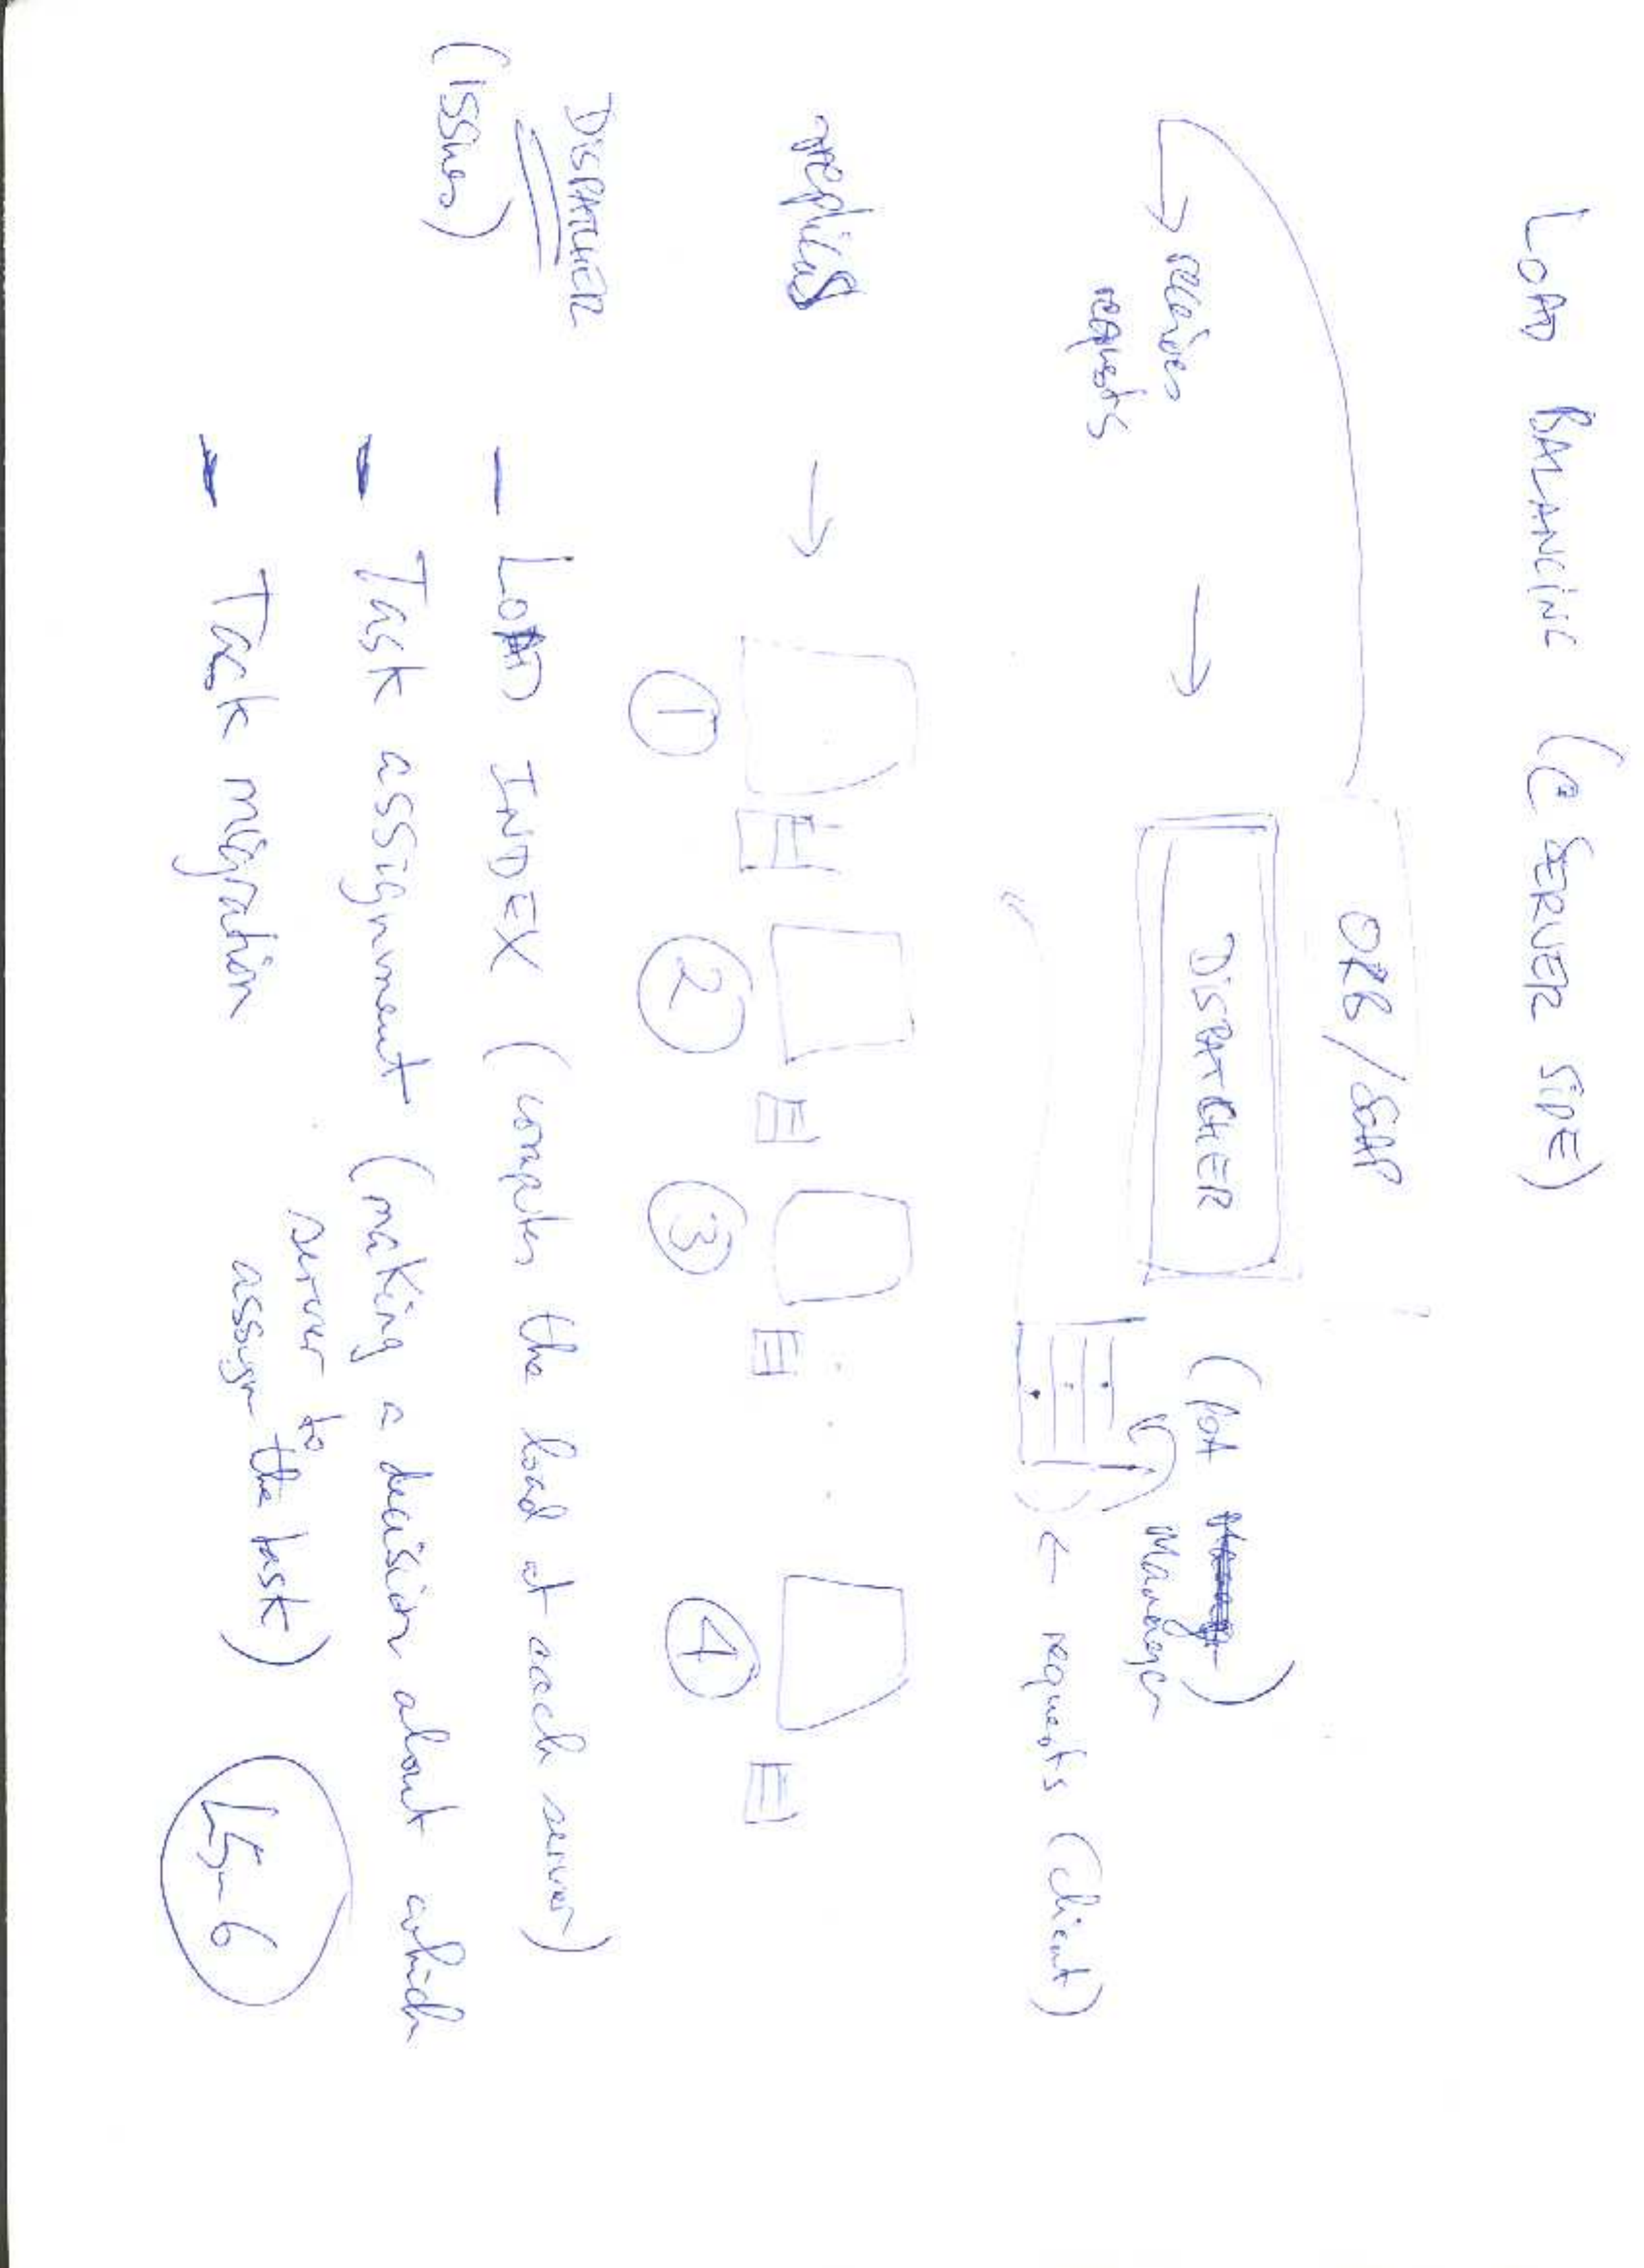 LOAD BALANCING (@ SERVER SIDE)
ORB/SOAP
→ receives requests
→ DISPATCHER (POA
Manager)
← requests (client)
replicas →
1 2 3 4
DISPATCHER
(Issues)
- LOAD INDEX (computes the load at each server)
- Task assignment (making a decision about which
server to
assign the task)
- Task migration
L5-6